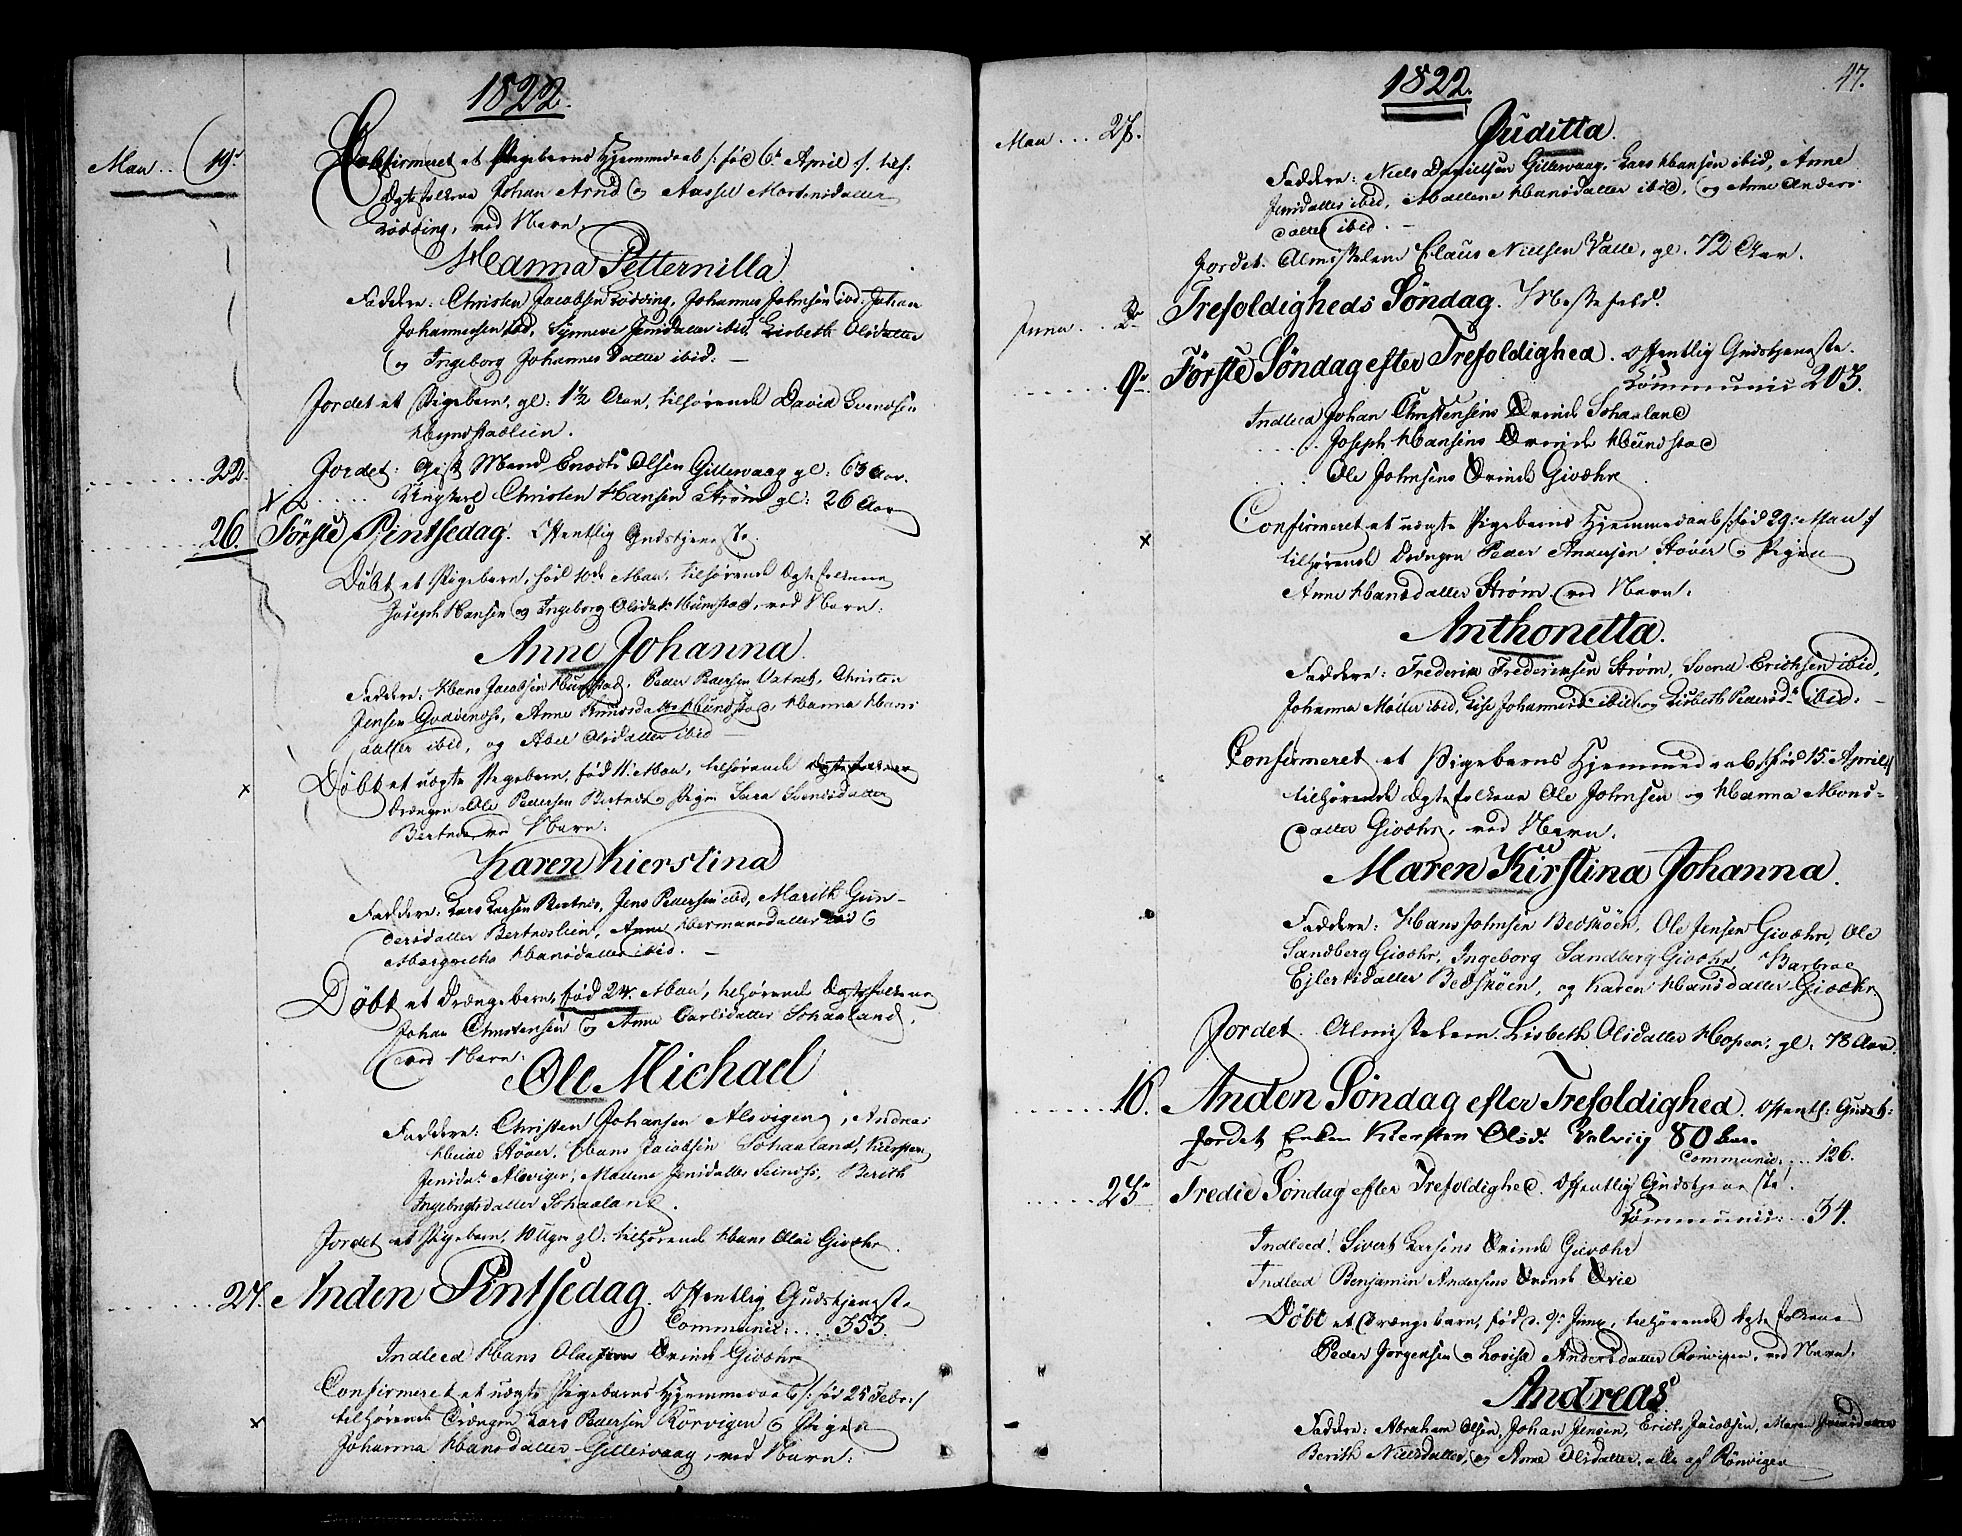 1822.
Maii .. 19de
Confirmeret et Pigebarns Hjemmedaab /: fød 6te April :/ tilh:
Ægtefolkene Johan Arnd og Aassel Mortensdatter
Lødding, ved Navn.
Hanna Petternilla
Faddere: Christen Jacobsen Lødding, Johannes Johnsen ibd: Johan
Johannessen ibd, Synneve Jensdatter ibid, Lisbeth Olsdatter
og Ingeborg Johannesdatter ibid. —
Jordet et Pigebarn, gl: 1½ Aar, tilhørende David Svendsen
Hundstadlien.
22. Jordet: Gift Mand Enoch Olsen Gillesvaag gl: 63 Aar.
Ungkarl Christen Hansen Strøm gl: 26 Aar
26. Første Pintsedag. Offentlig Gudstjeneste.
Døbt et Pigebarn, fød 10de Maii, tilhørende Ægtefolkene
Joseph Hansen og Ingeborg Olsdatr Hundstad, ved Navn:
Anne Johanna.
Faddere: Hans Jacobsen Hundstad, Peder Pedersen Vatnet, Christen
Jensen Godvend, Anne Knudsdatter Hundstad Hanna Hans-
datter ibid, og Abel Olsdatter ibid —
Døbt et uægte Pigebarn, fød 11. Maii, tilhørende Ægtefolkene
Drængen Ole Pedersen Bertnes og Pigen Sara Svendsdatter
Bertnes, ved Navn:
Karen Kierstina
Faddere: Lars Larsen Bertnes, Jens Pedersen ibid, Marith Gun-
dersdatter Bertneslien, Anne Hermansdatter ibid og
Margrethe Hansdatter ibid. —
Døbt et Drængebarn, fød 24. Maii, tilhørende Ægtefolkene
Johan Christensen og Anne Carlsdatter Schaaland,
ved Navn:
Ole Michael
Faddere: Christen Johansen Alsvigen, Andreas
Støver, Hans Jacobsen Schaaland, Kiersten
Jensdr. Alsvigen, Madlene Jensdatter, Berith
Ingebrigtsdatter Schaaland.
Jordet et Pigebarn, 10 Uger gl: tilhørende Hans Olai Givær.
27. Anden Pintsedag. Offentlig Gudstjeneste
Communic: .... 353.
Indleed Hans Olai Qvinde Givær
Confirmeret et uægte Pigebarns Hjemmedaab /: fød 25 Febr: /
tilhørende Drængen Lars Pedersen Rörvigen og Pigen
Johanna Hansdatter Gillesvaag, ved Navn:
1822.
47.
Maii .... 27.
Juditta.
Faddere: Niels Danielsen Gillesvaag, Lars Hansen ibid, Anne
Jensdatter ibid, Madlene Hansdatter ibid, og Anne Anders-
datter ibid. —
Jordet. Almisselem Claus Nielsen Valle, gl. 72 Aar.
Junii ... 2. Trefoldigheds Söndag. Messefald.
9de Förste Söndag efter Trefoldighed. Offentlig Gudstjeneste.
Communic 203.
Indleed Johan Christensens Qvinde Schaaland
Joseph Hansens Qvinde Hundstad
Ole Johnsens Qvinde Givær
Confirmeret et uægte Pigebarns Hjemmedaab /: fød 29. Maii :/
tilhørende Drængen Peder Andersen Støver og Pigen
Anne Hansdatter Strøm, ved Navn.
Anthonetta.
Faddere: Frederik Frederiksen Strøm, Svend Erichsen ibid,
Johanna Møller ibid, Lise Johannesd. ibid og Lisbeth Pedersd. ibid. —
Confirmeret et Pigebarns Hjemmedaab /: fød 15. April :/
tilhørende Ægtefolkene Ole Johnsen og Hanna Mons-
datter Givær, ved Navn.
Maren Kirstina Johanna.
Faddere: Hans Johnsen Bedskøen, Ole Jensen Givær, Ole
Sandberg Givær, Ingeborg Sandberg Givær, Barbroe
Ejlertsdatter Bedskøen, og Karen Hansdatter Givær.
Jordet. Almisselem Lisbeth Olsdatter Hopen, gl. 78 Aar.
16. Anden Söndag efter Trefoldighed. Offentl: Gudstj:
Jordet Enken Kiersten Olsd. Valvig 80 Aar.
Communic: .... 126.
23de Tredie Söndag efter Trefoldighed. Offentlig Gudstjeneste.
Communic: ... 34.
Indleed. Sivert Larsens Qvinde Givær
Indleed Benjamin Andersens Qvinde
Døbt et Drængebarn, fød d. 9. Junii, tilhørende Ægtefolkene
Peder Jørgensen og Lovisa Andersdatter Rønvigen, ved Navn.
Andreas
Faddere: Abraham Olsen, Johan Jensen, Erich Jacobsen, Maren
Berith Nielsdatter, og Anne Olsdatter, alle af Rønvigen